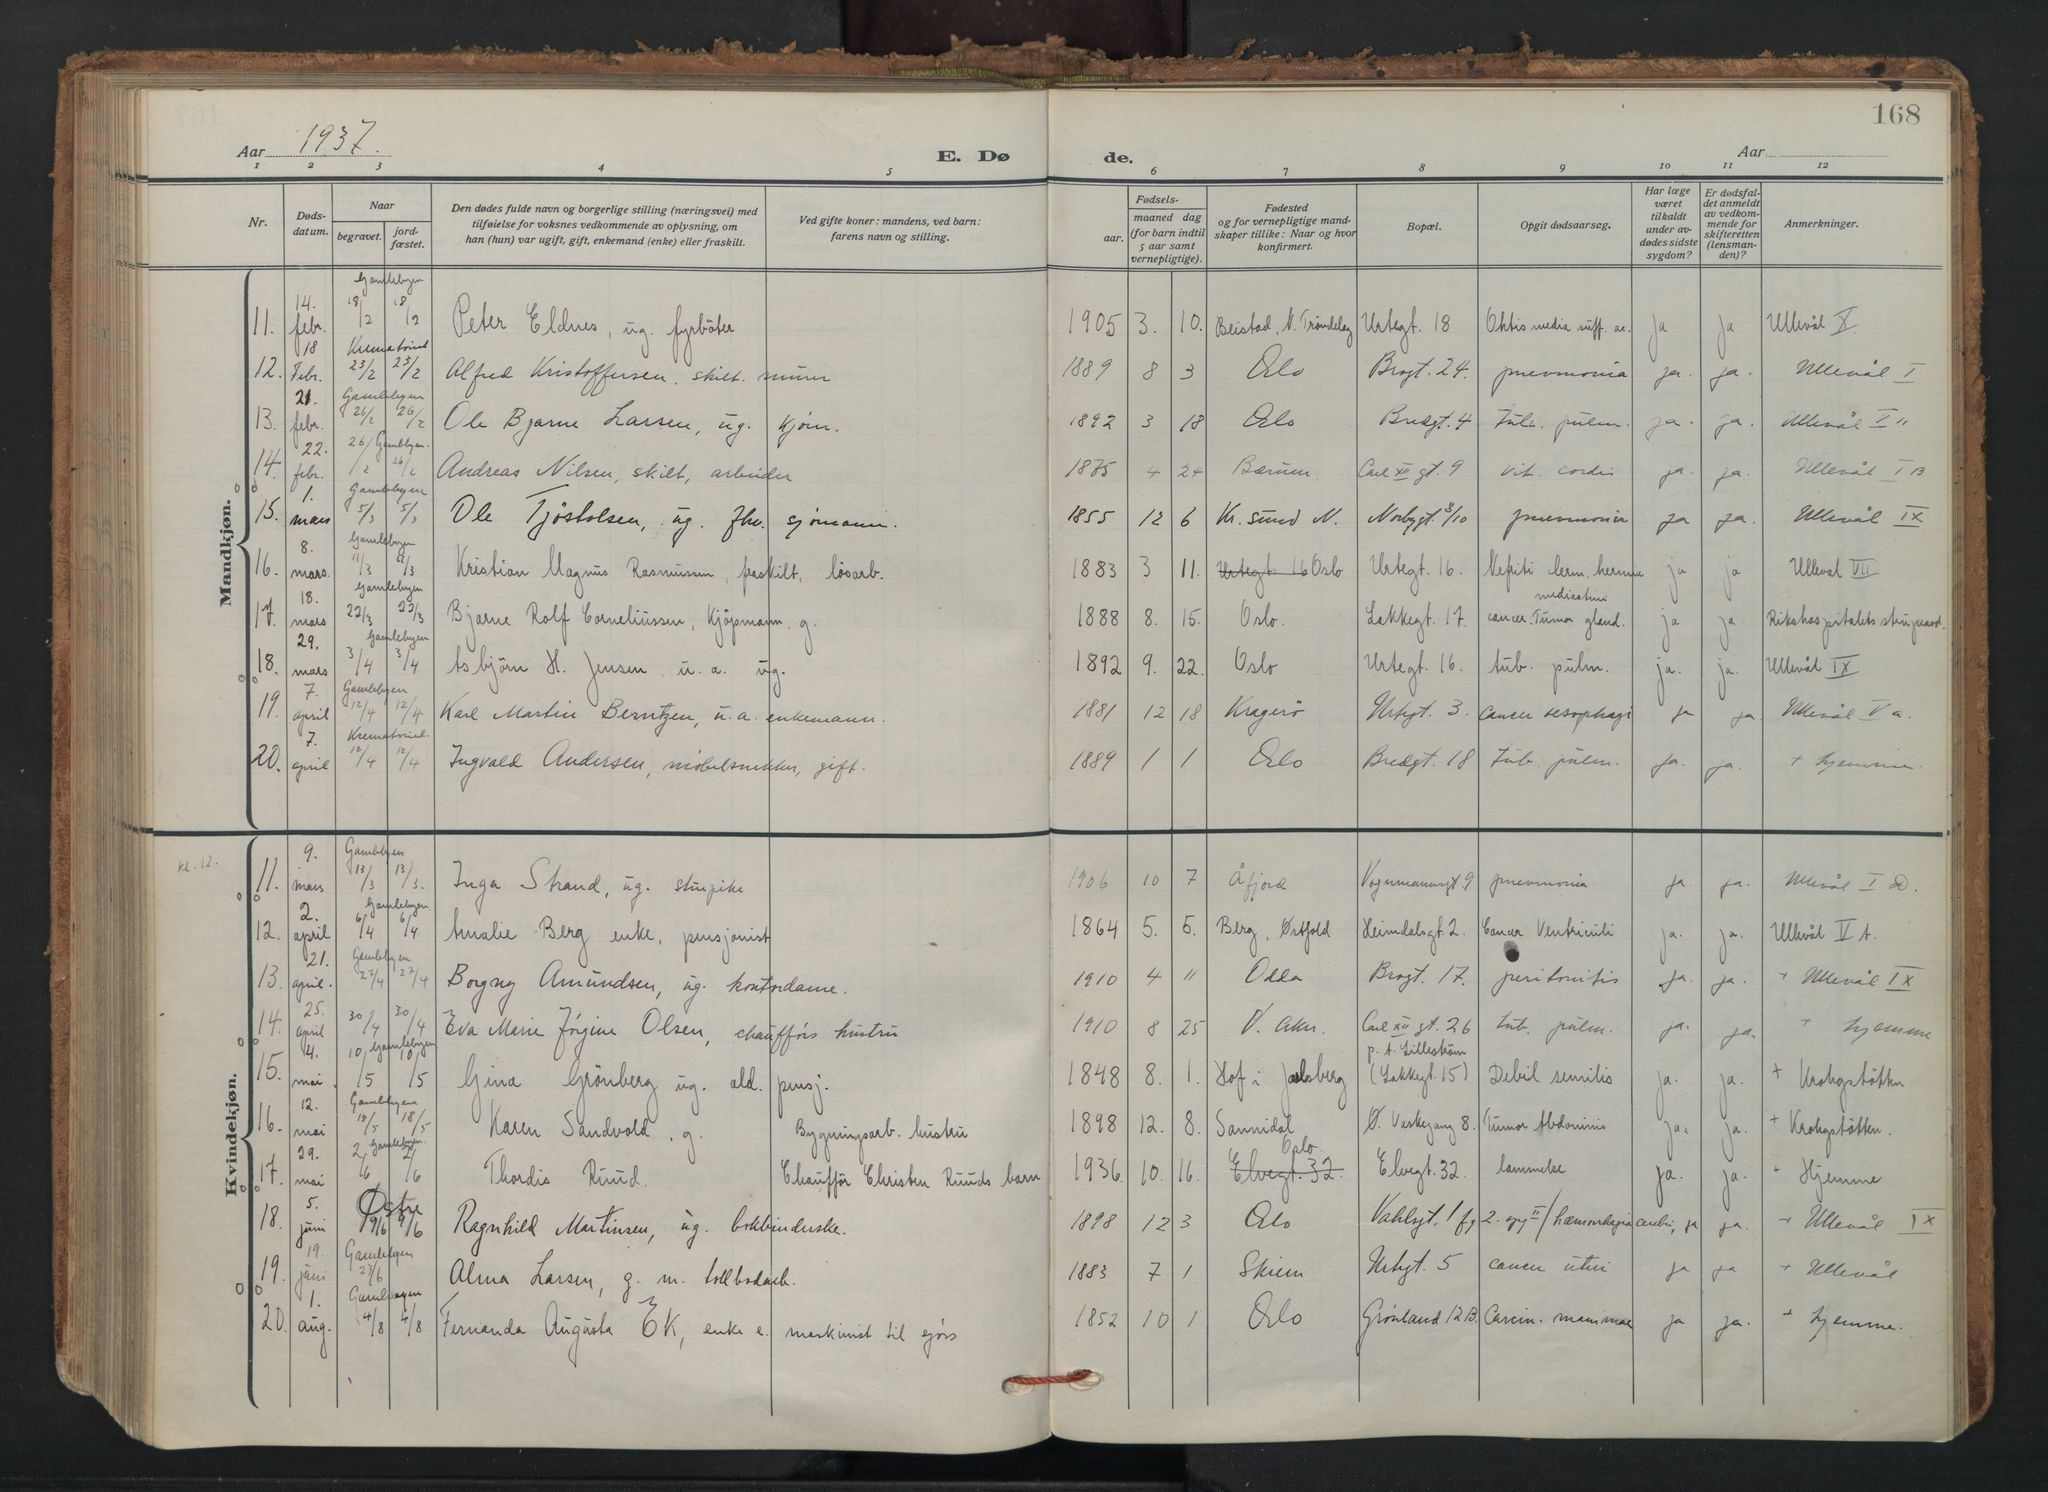 168
Aar 1937.
E. Dø de.
Aar
1 2 3 4 5 6 7 8 9 10 11 12
Nr.
Døds-
datum.
Naar
begravet.
jord-
fæstet.
Den dødes fulde navn og borgerlige stilling (næringsvei) med
tilføielse for voksnes vedkommende av oplysning, om
han (hun) var ugift, gift, enkemand (enke) eller fraskilt.
Ved gifte koner: mandens, ved barn:
farens navn og stilling.
Fødsels-
aar.
maaned dag
(for barn indtil
5 aar samt
vernepligtige).
Fødested
og for vernepligtige mand-
skaper tillike: Naar og hvor
konfirmert.
Bopæl.
Opgit dødsaarsag.
Har læge
været
tilkaldt
under av-
dødes sidste
sygdom?
Er dødsfal-
det anmeldt
av vedkom-
mende for
skifteretten
(lensman-
den)?
Anmerkninger.
Mandkjøn.
Gamlebyen
11. 14. febr. 18/2 18/2 Peter Eldnes, ug. fyrböter 1905 3. 10. Beistad, N. Trøndelag Urtegt 18 Ohtis media suff. ac. ja ja Ullevål X
Krematoriet
12. 18 Febr. 23/2 23/2 Alfred Kristoffersen, skilt. murer 1889 8 3 Oslo Brogt. 24. pnevmonia ja. ja. Ullevål I
Gamlebyen
13. 21. febr. 26/2 26/2 Ole Bjarne Larsen, ug. kjörn. 1892 3 18 Oslo Bredgt. 4 tub. pulm. ja. ja. Ullevål I "
Gamlebyen.
14. 22. febr. 26/2 26/2 Andreas Nilsen, skilt, arbeider 1875 4 24 Bærum Carl XII gt. 9 vit. cordis ja. ja. Ullevål I B
Gamlebyen
15. 1. mars 5/3 5/3 Ole Tjöstolsen, ug. fhv. sjömann. 1855 12 6 Kr.sund N. Norbygt. 8/10 pnevmonia ja ja. Ullevål IX
Gamlebyen
16. 8. mars. 11/3 11/3 Kristian Magnus Rasmussen, fraskilt, lösarb. 1883 3 11. Urtegt 16 Oslo Urtegt. 16. ja ja Ullevål VII
Gamlebyen
mediastini
17. 18. mars 22/3 22/3 Bjarne Rolf Corneliussen, Kjöpmann g. 1888 8. 15. Oslo. Lakkegt. 17. cancer. Tumor gland. ja ja. Rikshospitalets
Gamlebyen
18. 29. mars 3/4 3/4 Asbjörn H. Jensen u. a. ug. 1892 9. 22. Oslo Urtegt. 16. tub. pulm. ja. ja. Ullevål IX
Gamlebyen
19. 7. april 12/4 12/4 Karl Martin Berntzen, u.a. enkemann. 1881 12 18 Kragerö Urtegt. 3. cancer oesophagi ja ja. Ullevål V a.
Krematoriet.
20. 7. april 12/4 12/4 Ingvald Andersen, möbelsnekker, gift. 1889 1 1 Oslo Bredgt. 18 tub. pulm. ja. ja. + hjemme.
Kvindekjøn.
kl. 12.
Gamlebyen
11. 9. mars 13/3 13/3. Inga Strand, ug. stuepike 1906 10 7 Åfjord Vognmannsgt 9 pnevmonia ja. ja. Ullevål I D.
Gamlebyen.
12. 2. april 6/4 6/4 Amalie Berg enke, pensjonist 1864 5. 5. Berg, Østfold Heimdalsgt 2. Cancer Ventriculi ja. ja. Ullevål V A.
Gamlebyen
13. 21. april. 27/4 27/4 Borgny Amundsen, ug. kontordame. 1910 4 " Odda Brogt. 17. peritonitis ja. ja. + Ullevål IX
14. 25. april 30/4 30/4 Eva Marie Jörgine Olsen, chaufförs hustru 1910 8 25 V. Aker. Carl XII gt. 26 tub. pulm. ja. ja. + hjemme
Gamlebyen
p. A. Lilleström
15. 4. mai 10/5 10/5 Gina Grönberg ug. ald. pensj. 1848 8. 1. Hof i Jarlsberg (Lakkegt. 15) Debil senilis ja. ja. + Krohgstötten
Gamlebyen
16. 12. mai 18/5 18/5 Karen Sandvold, g. Bygningsarb. hustru 1898 12. 8. Sannidal Ø. Vaskegang 8. Tumor Abdominis ja. ja. + Krohgstötten.
Gamlebyen.
Oslo
17. 29. mai 2/6 2/6 Thordis Ruud. Chaufför Christen Ruuds barn 1936 10. 16. Elvegt. 32. Elvegt. 32 lammelse ja. ja. + Hjemme
Østre
18. 5. juni 9/6 9/6 Ragnhild Martinsen, ug. bokbinderske. 1898 12 3 Oslo Vahlsgt. 1 2. opg II / hæmorrhagia cerebri, ja ja. + Ullevål IX
Gamlebyen
19. 19. juni 23/6 Alma Larsen, g. m. tollbodarb. 1883 7 1 Skien Urtegt. 5 cancer uteri ja ja + Ullevål
Gamlebyen
20. 1. aug. 4/8 4/8 Fernanda Augusta Ek, enke e. maskinist til sjøs 1852 10 1 Oslo Grønland 12 B. Carcin. mammae ja ja. + hjemme.